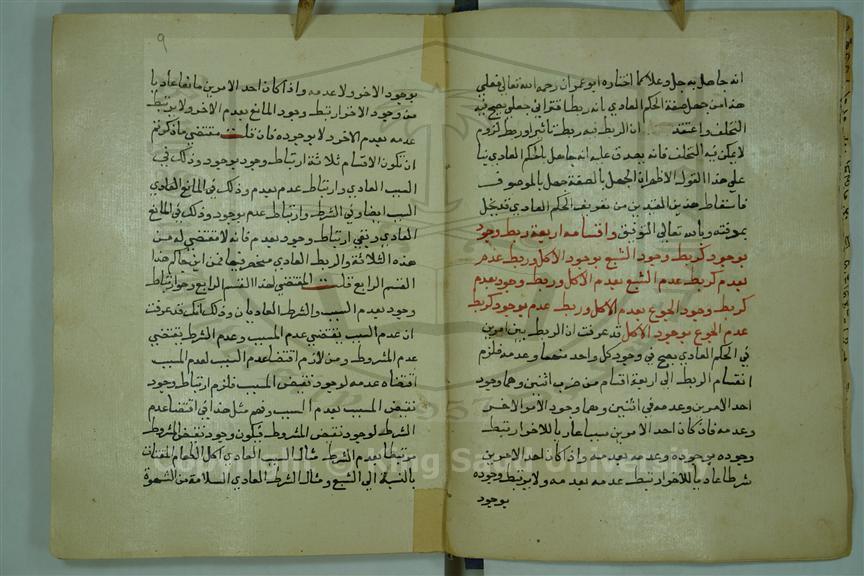 انه جاهل به جل وعلا كما اختاره ابو عمران رحمه الله تعالى فعلى
هذا من جهل صفة الحكم العادي بانه ربط اقتراني جعلي يصح فيه
التخلف واعتقد ان الربط فيه ربط تاثير او ربط لزوم
لا يمكن فيه التخلف فانه يصدق عليه انه جاهل بالحكم العادي بنا
على هذا القول الاظهر ان الجهل بالصفة جهل بالموصوف
فاسقاط هذين القيدين من تعريف الحكم العادي قد يخل
بمعرفته وبالله تعالى التوفيق واقسامه اربعة ربط وجود
بوجود كربط وجود الشبع بوجود الاكل وربط عدم
بعدم كربط عدم الشبع بعدم الاكل وربط وجود بعدم
كربط وجود الجوع بعدم الاكل وربط عدم بوجود كربط
عدم الجوع بوجود الاكل قد عرفت ان الربط بين امرين
في الحكم العادي يصح في وجود كل واحد منهما وعدمه فلزم
انقسام الربط الى اربعة اقسام من ضرب اثنين وهما وجود
احد الامرين وعدمه في اثنين وهما وجود الامر الاخر
وعدمه فان كان احد الامرين سببا عاديا للاخر ارتبط
وجوده بوجوده وعدمه بعدمه واذا كان احد الامرين
شرطا عاديا للاخر ارتبط عدمه بعدمه ولا يرتبط وجوده
بوجود
٩
بوجود الاخر ولا عدمه واذا كان احد الامرين مانعا عاديا
من وجود الاخر ارتبط وجود المانع بعدم الاخر ولا يرتبط
عدمه بعدم الاخر ولا بوجوده فان قلت مقتضى ما ذكرتم
ان تكون الاقسام ثلاثة ارتباط وجود بوجود وذلك في
السبب العادي وارتباط عدم بعدم وذلك في
السبب ايضا وفي الشرط وارتباط عدم بوجود وذلك في المانع
العادي وبقي ارتباط وجود بعدم فانه لا مقتضي له من
هذه الثلاثة والربط العادي منحصر فيها فمن اين جاكم هذا
القسم الرابع قلت المقتضي لهذا القسم الرابع وهو ارتباط
وجود بعدم السبب والشرط العاديان وذلك انك قد عرفت
ان عدم السبب يقتضي عدم المسبب وعدم الشرط يقتضي
عدم المشروط ومن لازم اقتضا عدم السبب لعدم المسبب
اقتضاه عدمه لوجود نقيض المسبب فلزم ارتباط وجود
نقيض المسبب بعدم السبب وفهم مثل هذا في اقتضا عدم
الشرط لوجود نقيض المشروط فيكون وجود نقيض المشروط
مرتبطا بعدم الشرط مثال السبب العادي اكل الطعام المقتات
بالنسبة الى الشبع ومثال الشرط العادي السلامة من الشهوة